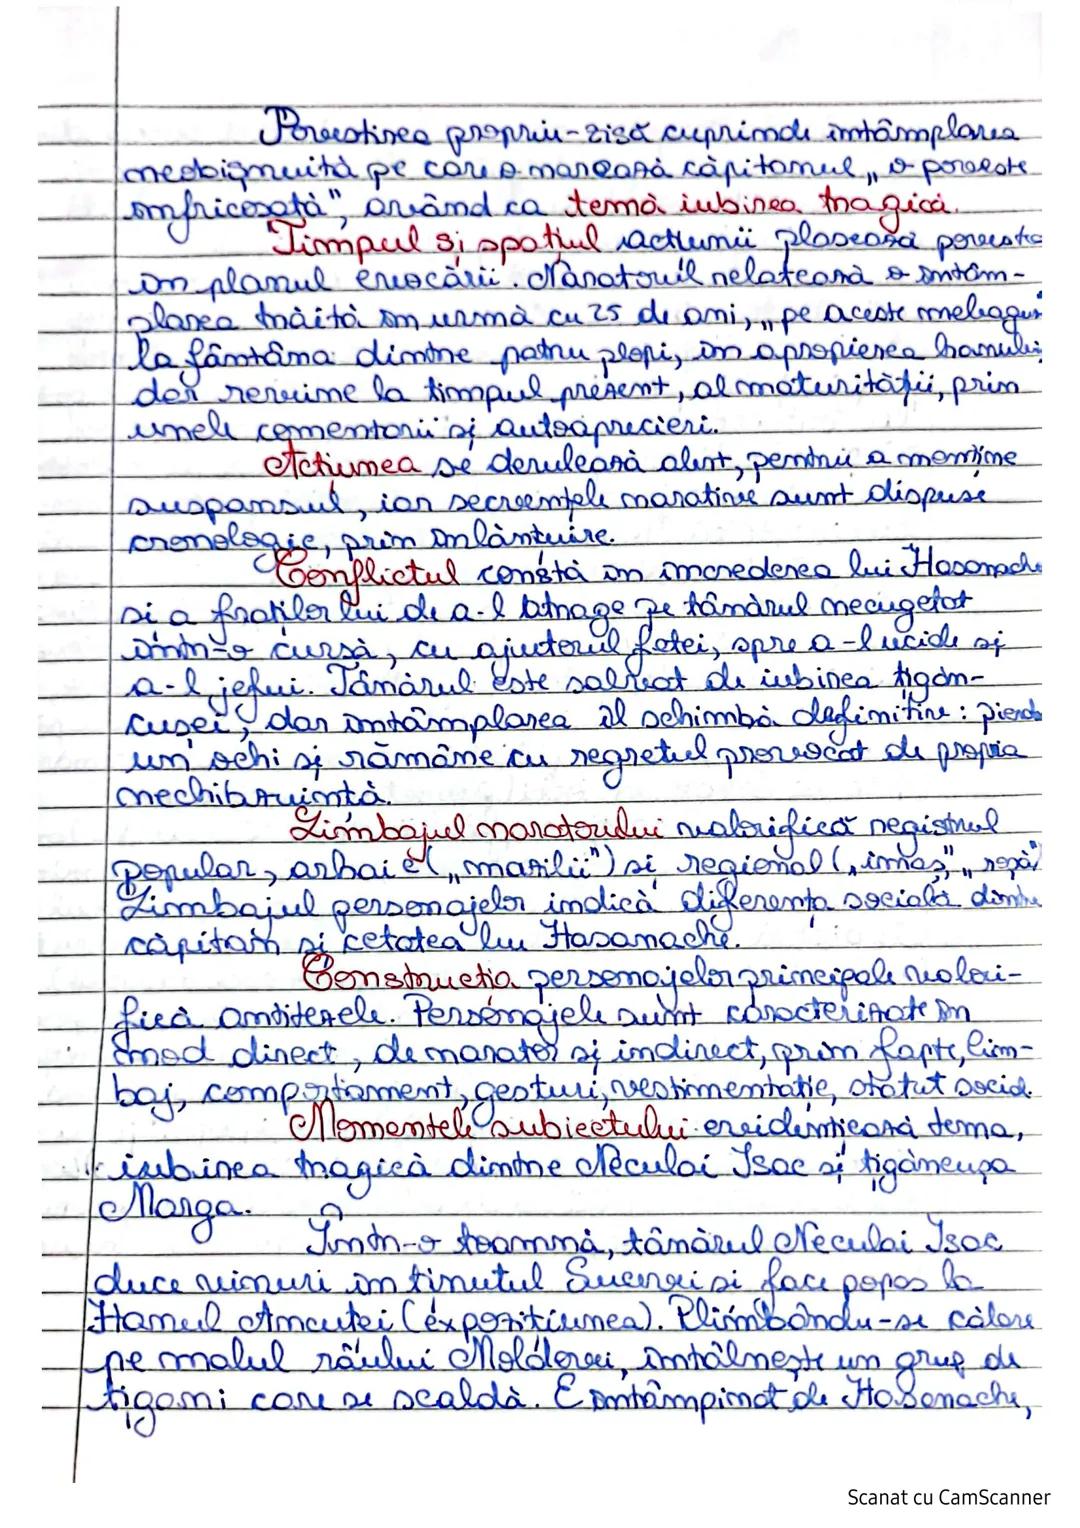 Povestirea propriu-zisă cuprinde întâmplarea
neobișnuită pe care o narează căpitanul, „o poveste
înfricoșată", având ca temă iubirea tragică.
Timpul și spațiul acțiunii plasează povestea
în planul evocării. Naratorul relatează o întâm-
plarea trăită în urmă cu 25 de ani, „pe aceste meleaguri
la fântâna dintre patru plopi, în apropierea hanului,
dar revine la timpul prezent, al maturității, prin
unele comentarii și autoaprecieri.
Acțiunea se derulează alert, pentru a menține
suspansul, iar secvențele narative sunt dispuse
cronologic, prin înlănțuire.
Conflictul constă în încrederea lui Hasanache
și a fraților lui de a-l atrage pe tânărul necugetat
într-o cursă, cu ajutorul fetei, spre a-l ucide și
a-l jefui. Tânărul este salvat de iubirea țigăn-
cușei, dar întâmplarea îl schimbă definitive: pierde
un ochi și rămâne cu regretul provocat de propria
nechibzuință.
Limbajul naratorului valorifică registrul
popular, arhaic („mazilii") și regional („imaș",
Limbajul personajelor indică diferența socială dintre
căpitan și cetatea lui Hasanache.
Construcția personajelor principale valori-
fică antitezele. Personajele sunt caracterizate în
mod direct, de narator și indirect, prin fapte, lim-
baj, comportament, gesturi, vestimentație, statut social.
Momentele subiectului evidențiază tema,
iubirea tragică dintre Neculai Isac și țigăncușa
Marga.
Într-o toamnă, tânărul Neculai Isac
duce vinuri în ținutul Sucevei și face popas la
Hanul Ancuței (expozițiunea). Plimbându-se călare
pe malul râului Moldovei, întâlnește un grup de
țigani care se scaldă. E întâmpinat de Hasanache,
Scanat cu CamScanner